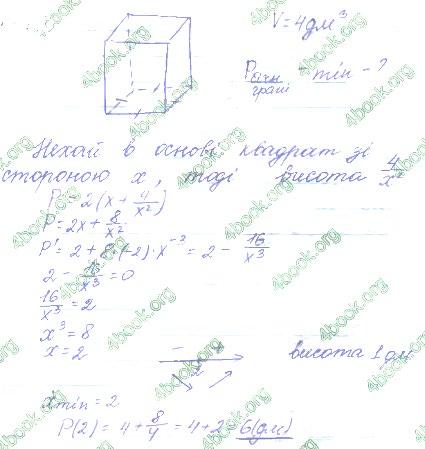 V = 4 дм³
P бічн грані - min - ?
Нехай в основі квадрат зі
стороною x, тоді висота 4/x²
P = 2(x + 4/x²)
P = 2x + 8/x²
P' = 2 + 8·(-2)·x⁻³ = 2 - 16/x³
2 - 16/x³ = 0
16/x³ = 2
x³ = 8
x = 2
- + 2
висота 1 дм
xmin = 2
P(2) = 4 + 8/4 = 4 + 2 = 6 (дм)
4book.org